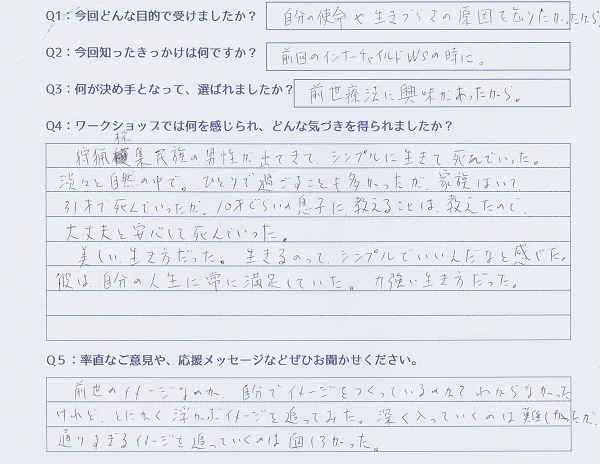 Q1：今回どんな目的で受けましたか？
自分の使命や生きづらさの原因を知りたかったから
Q2：今回知ったきっかけは何ですか？
前回のインナーチャイルドWSの時に。
Q3：何が決め手となって、選ばれましたか？
前世療法に興味があったから。
Q4：ワークショップでは何を感じられ、どんな気づきを得られましたか？
狩猟採集民族の男性が出てきて、シンプルに生きて死んでいった。
淡々と自然の中で。ひとりで過ごすことも多かったが、家族はいて、
31才で死んでいったが、10才ぐらいの息子に、教えることは、教えたので、
大丈夫と安心して死んでいった。
美しい生き方だった。生きるのって、シンプルでいいんだなと感じた。
彼は、自分の人生に常に満足していた。力強い生き方だった。
Q5：率直なご意見や、応援メッセージなどぜひお聞かせください。
前世のイメージなのか、自分でイメージをつくっているのか？わからなかった
けれど、とにかく浮かぶイメージを追ってみた。深く入っていくのは難しかったが、
通りすぎるイメージを追っていくのは面白かった。